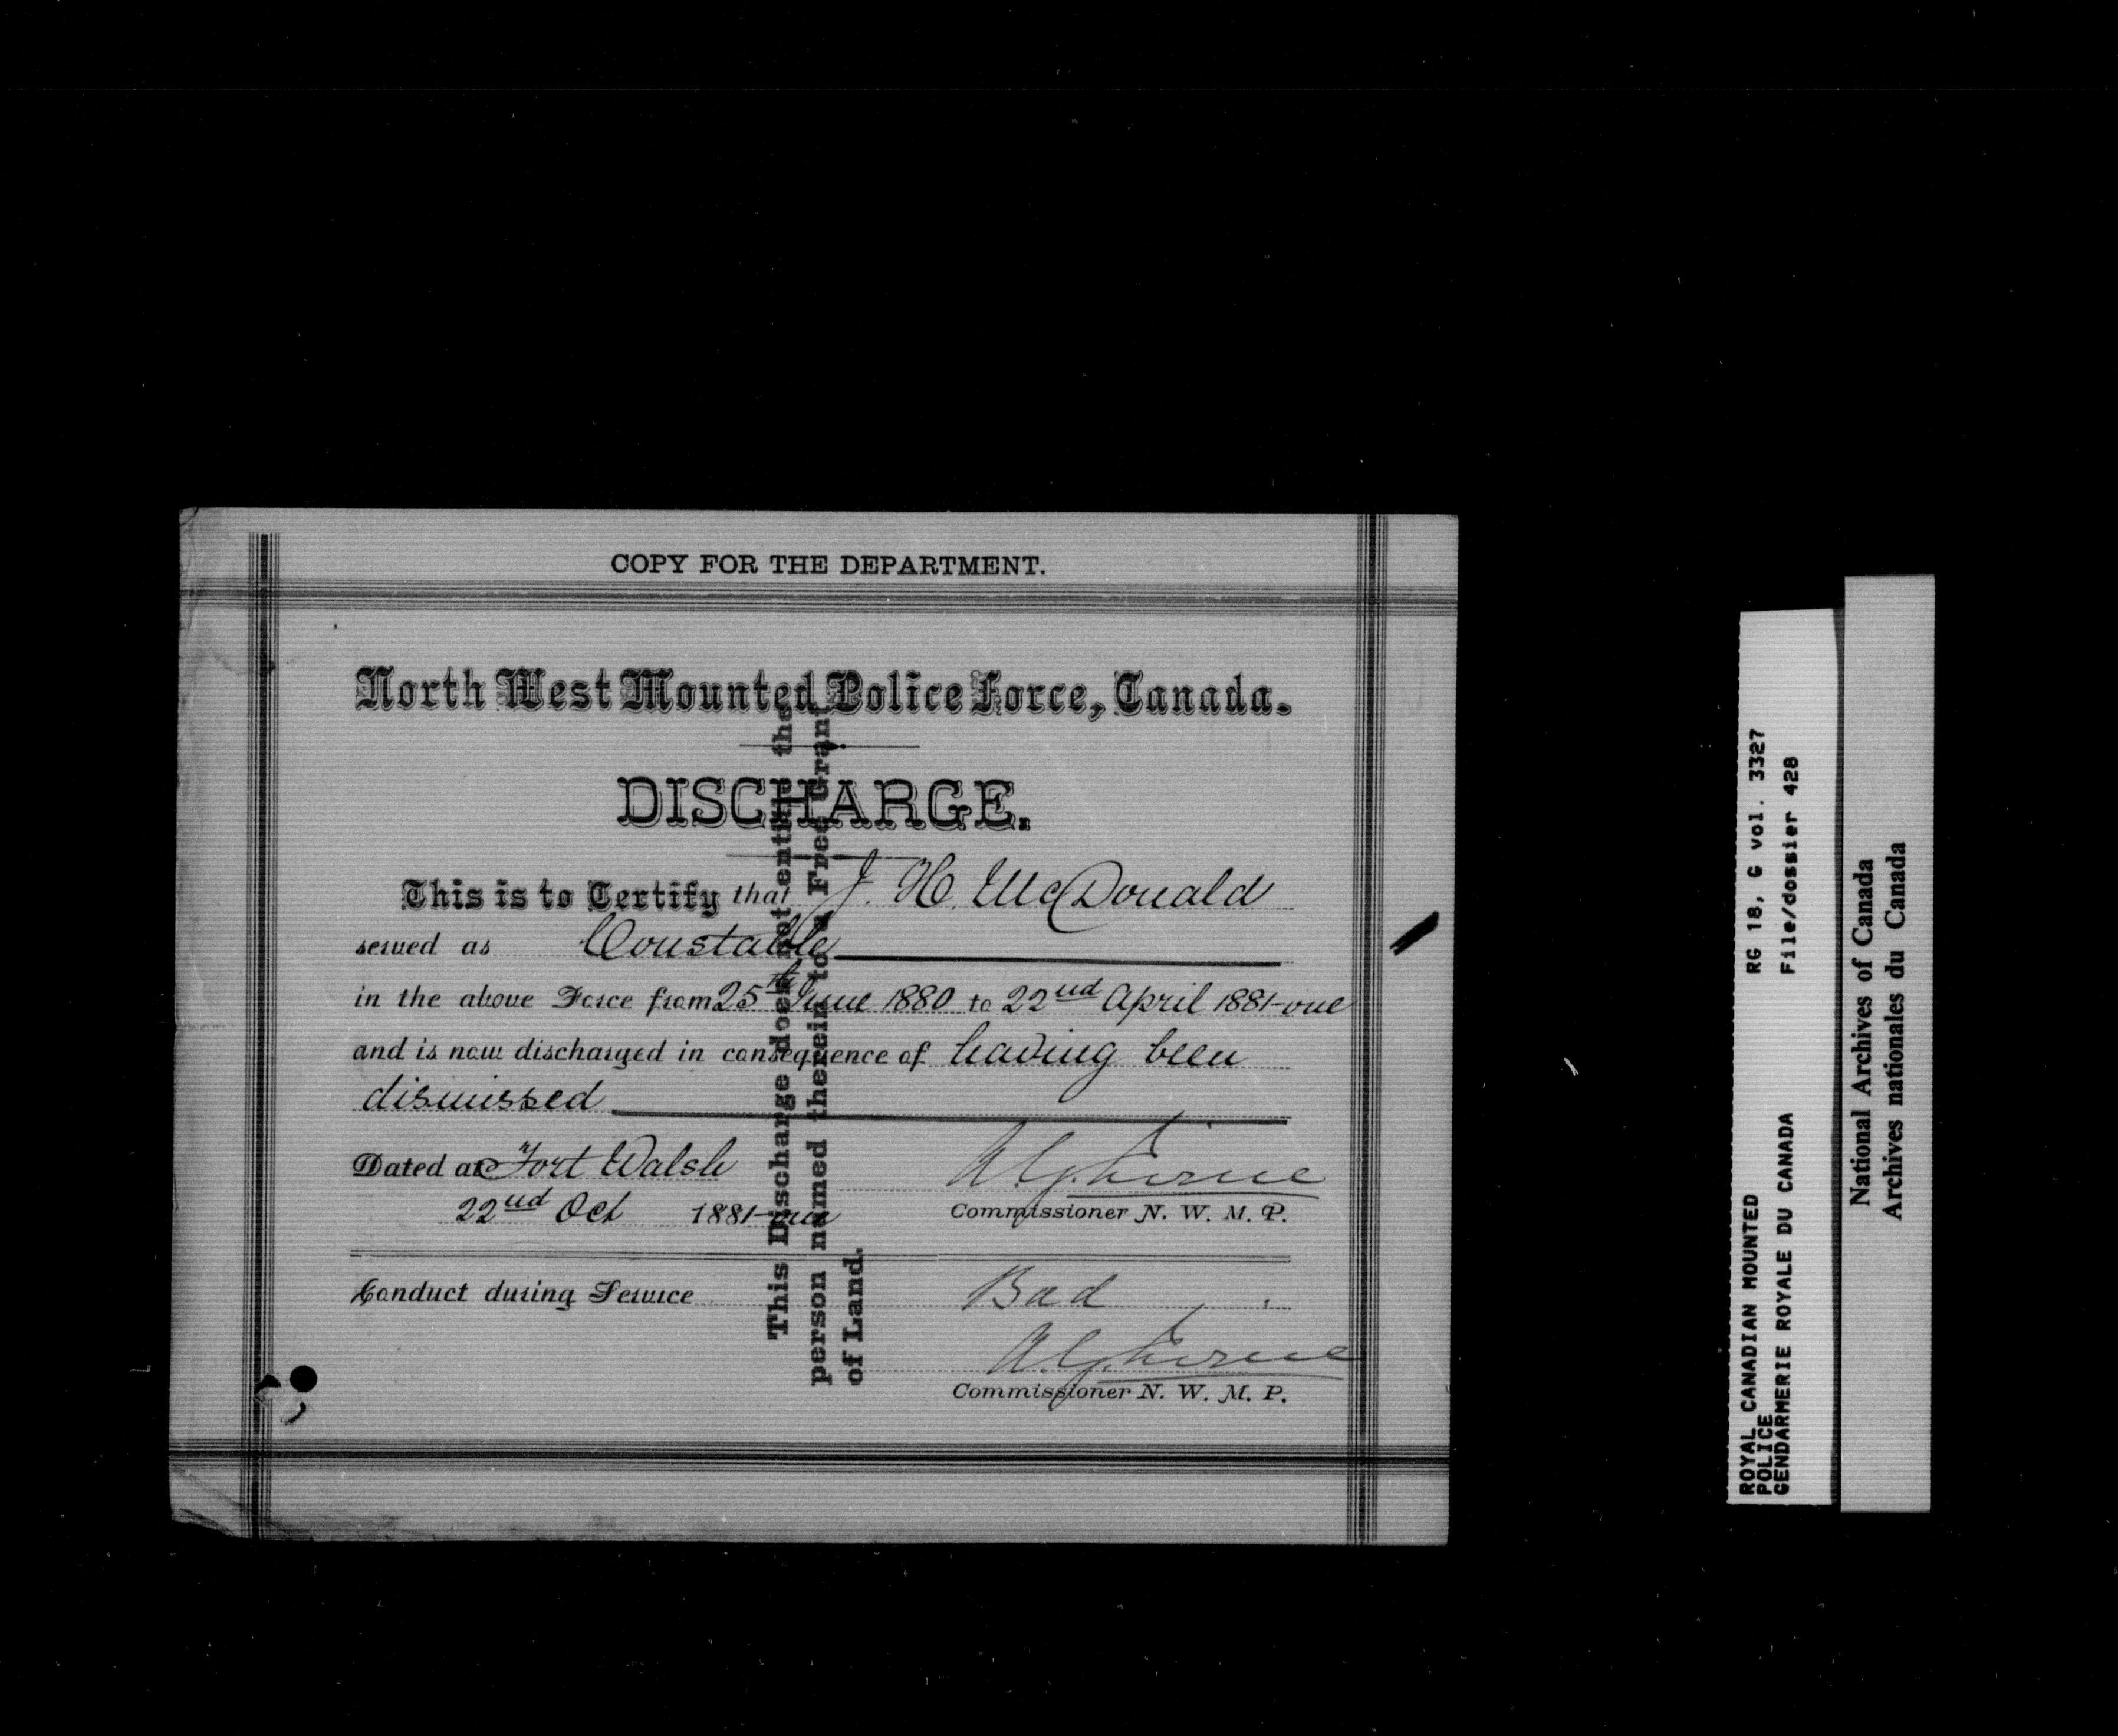 COPY FOR THE DEPARTMENT.
North West Mounted Police Force, Canada.
DISCHARGE.
This is to Certify that J. H. McDonald
served as Constable
in the above Force from 25th June 1880 to 22nd April 1881-one
and is now discharged in consequence of having been
dismissed
Dated at Fort Walsh
22nd Oct 1881-one
Commissioner N. W. M. P.
Conduct during Service Bad
Commissioner N. W. M. P.
This Discharge does not entitle the
person named therein to a Free Grant
of Land.
ROYAL CANADIAN MOUNTED RG 18, G vol. 3327
POLICE
GENDARMERIE ROYALE DU CANADA File/dossier 428
National Archives of Canada
Archives nationales du Canada